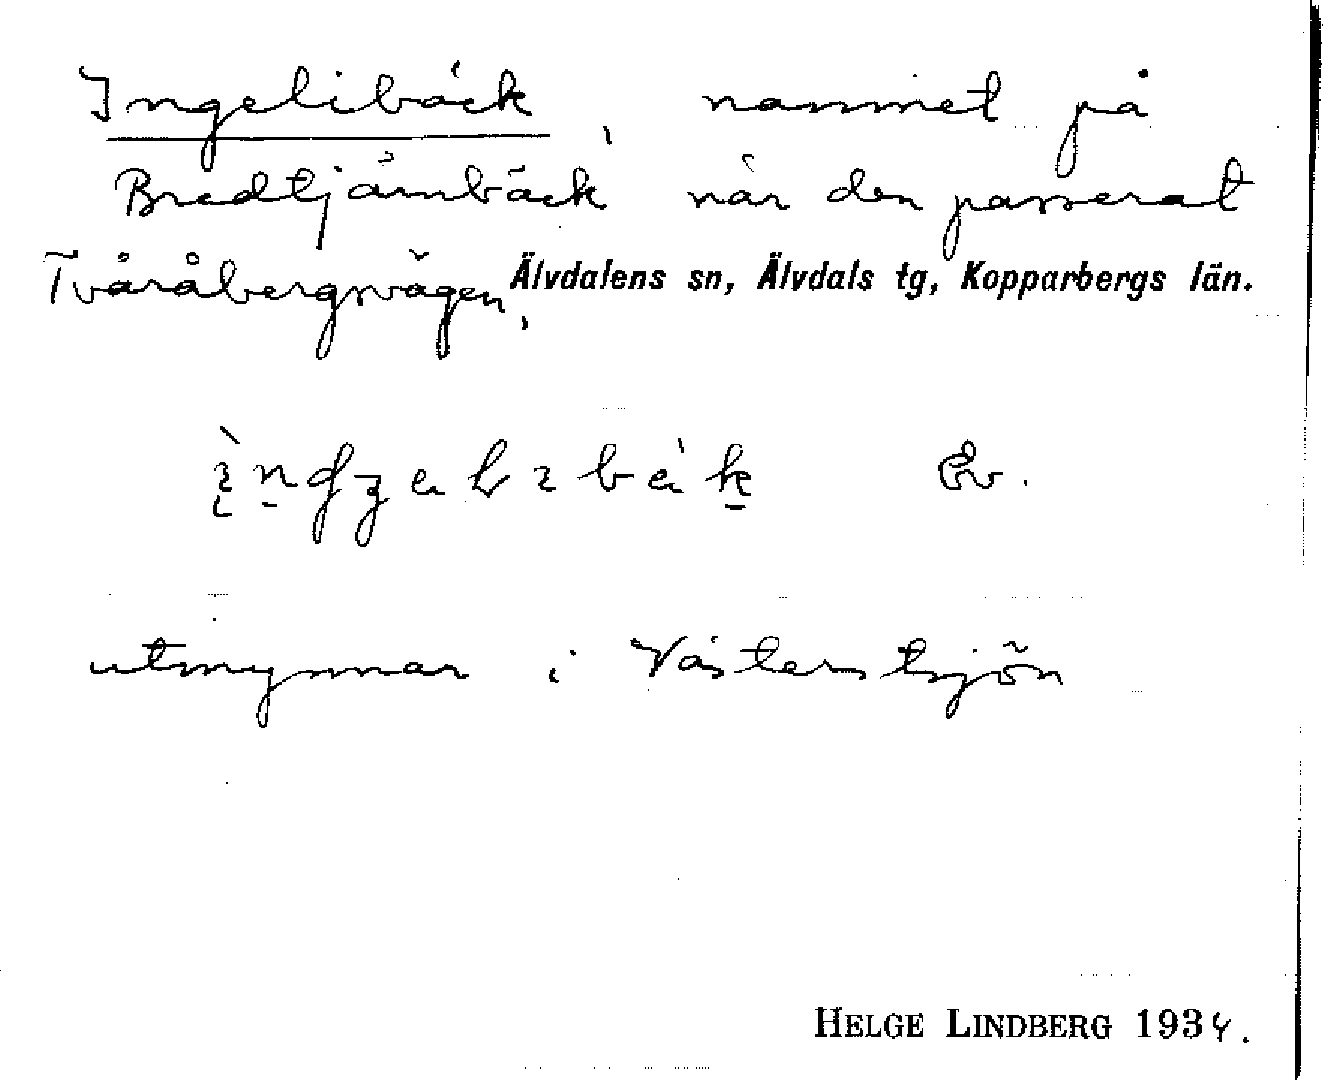 Ingelibäck, namnet på
Bredtjärnbäck när den passerat
Tvåråbergsvägen, Älvdalens sn, Älvdals tg, Kopparbergs län.
Äv.
utmynnar i Västerstsjön
HELGE LINDBERG 1934.